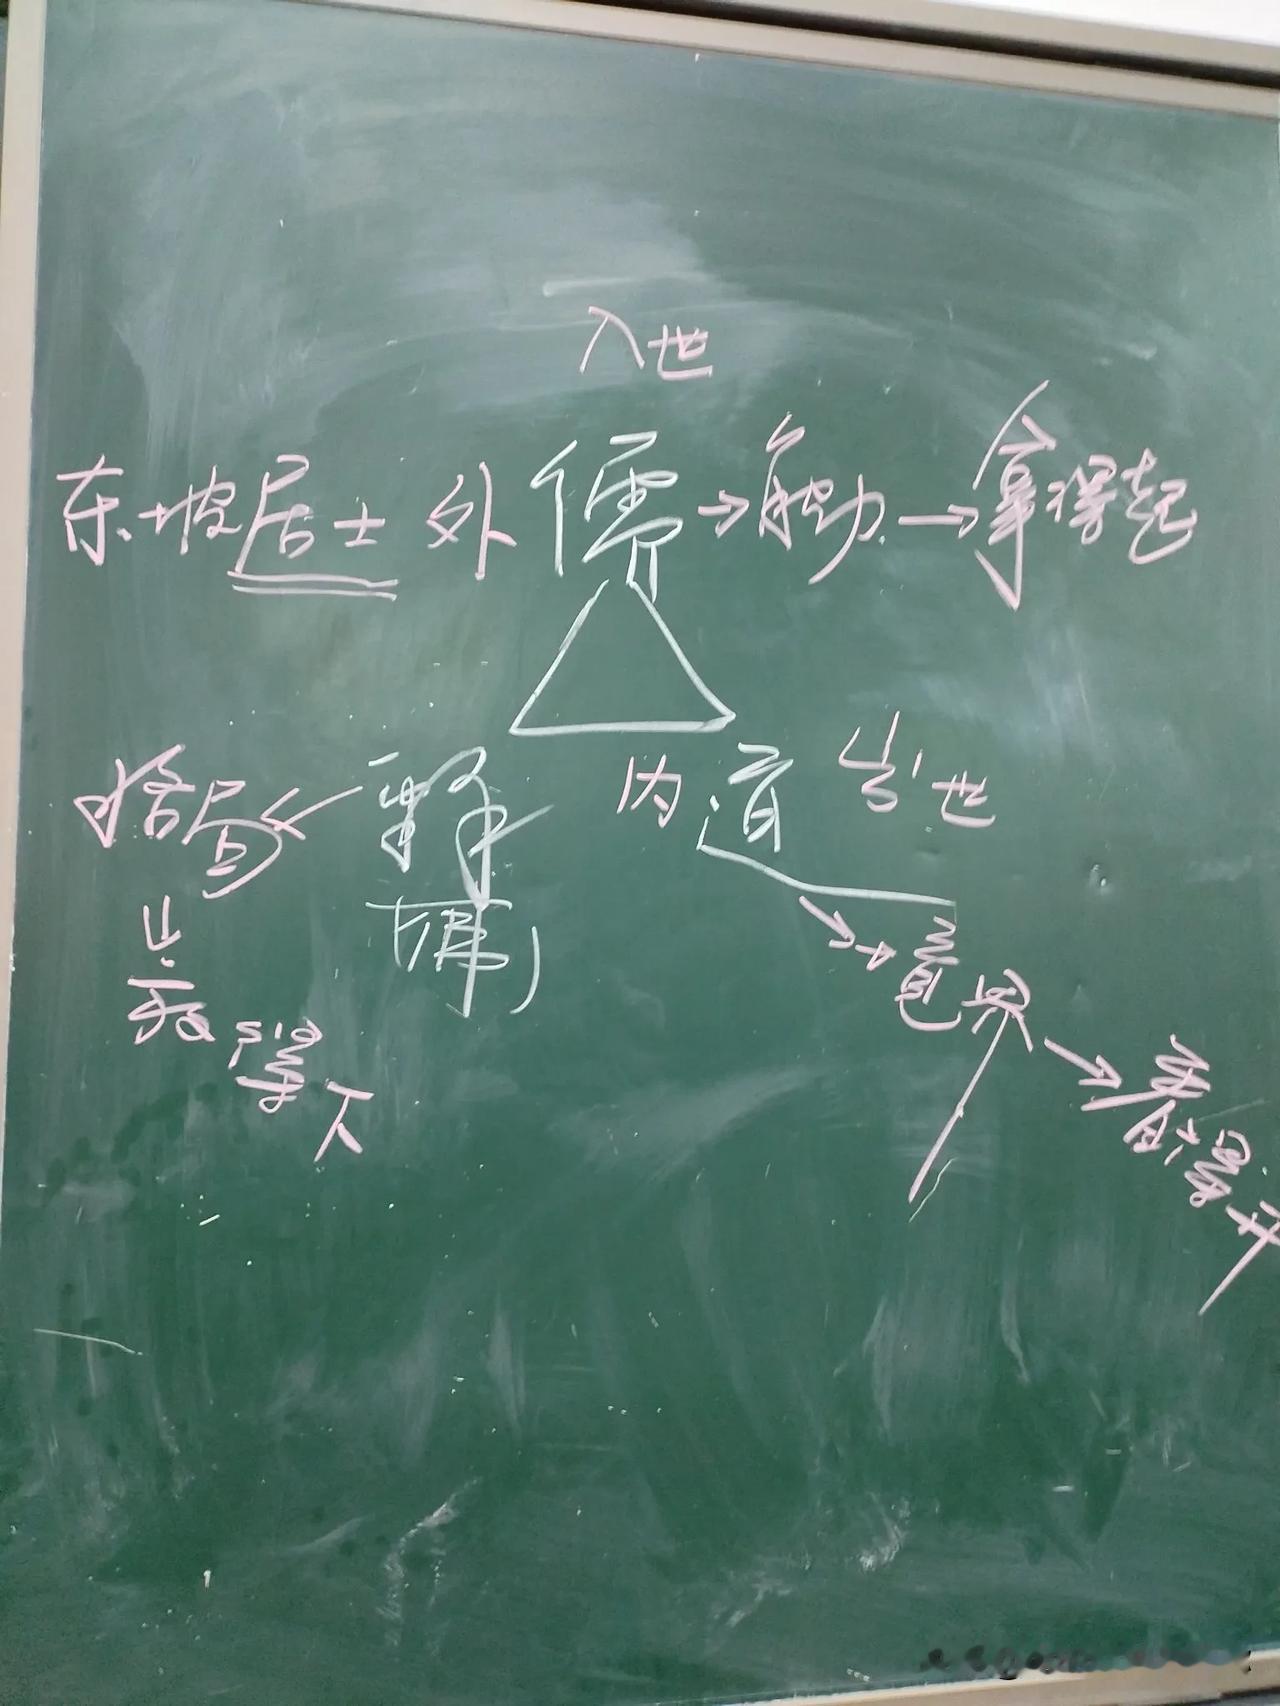 入世
东坡居士 外 儒 → 能力 → 拿得起
格局 ← 释 内 道 出世
(佛)
→ 意界 → 看得开
放得下